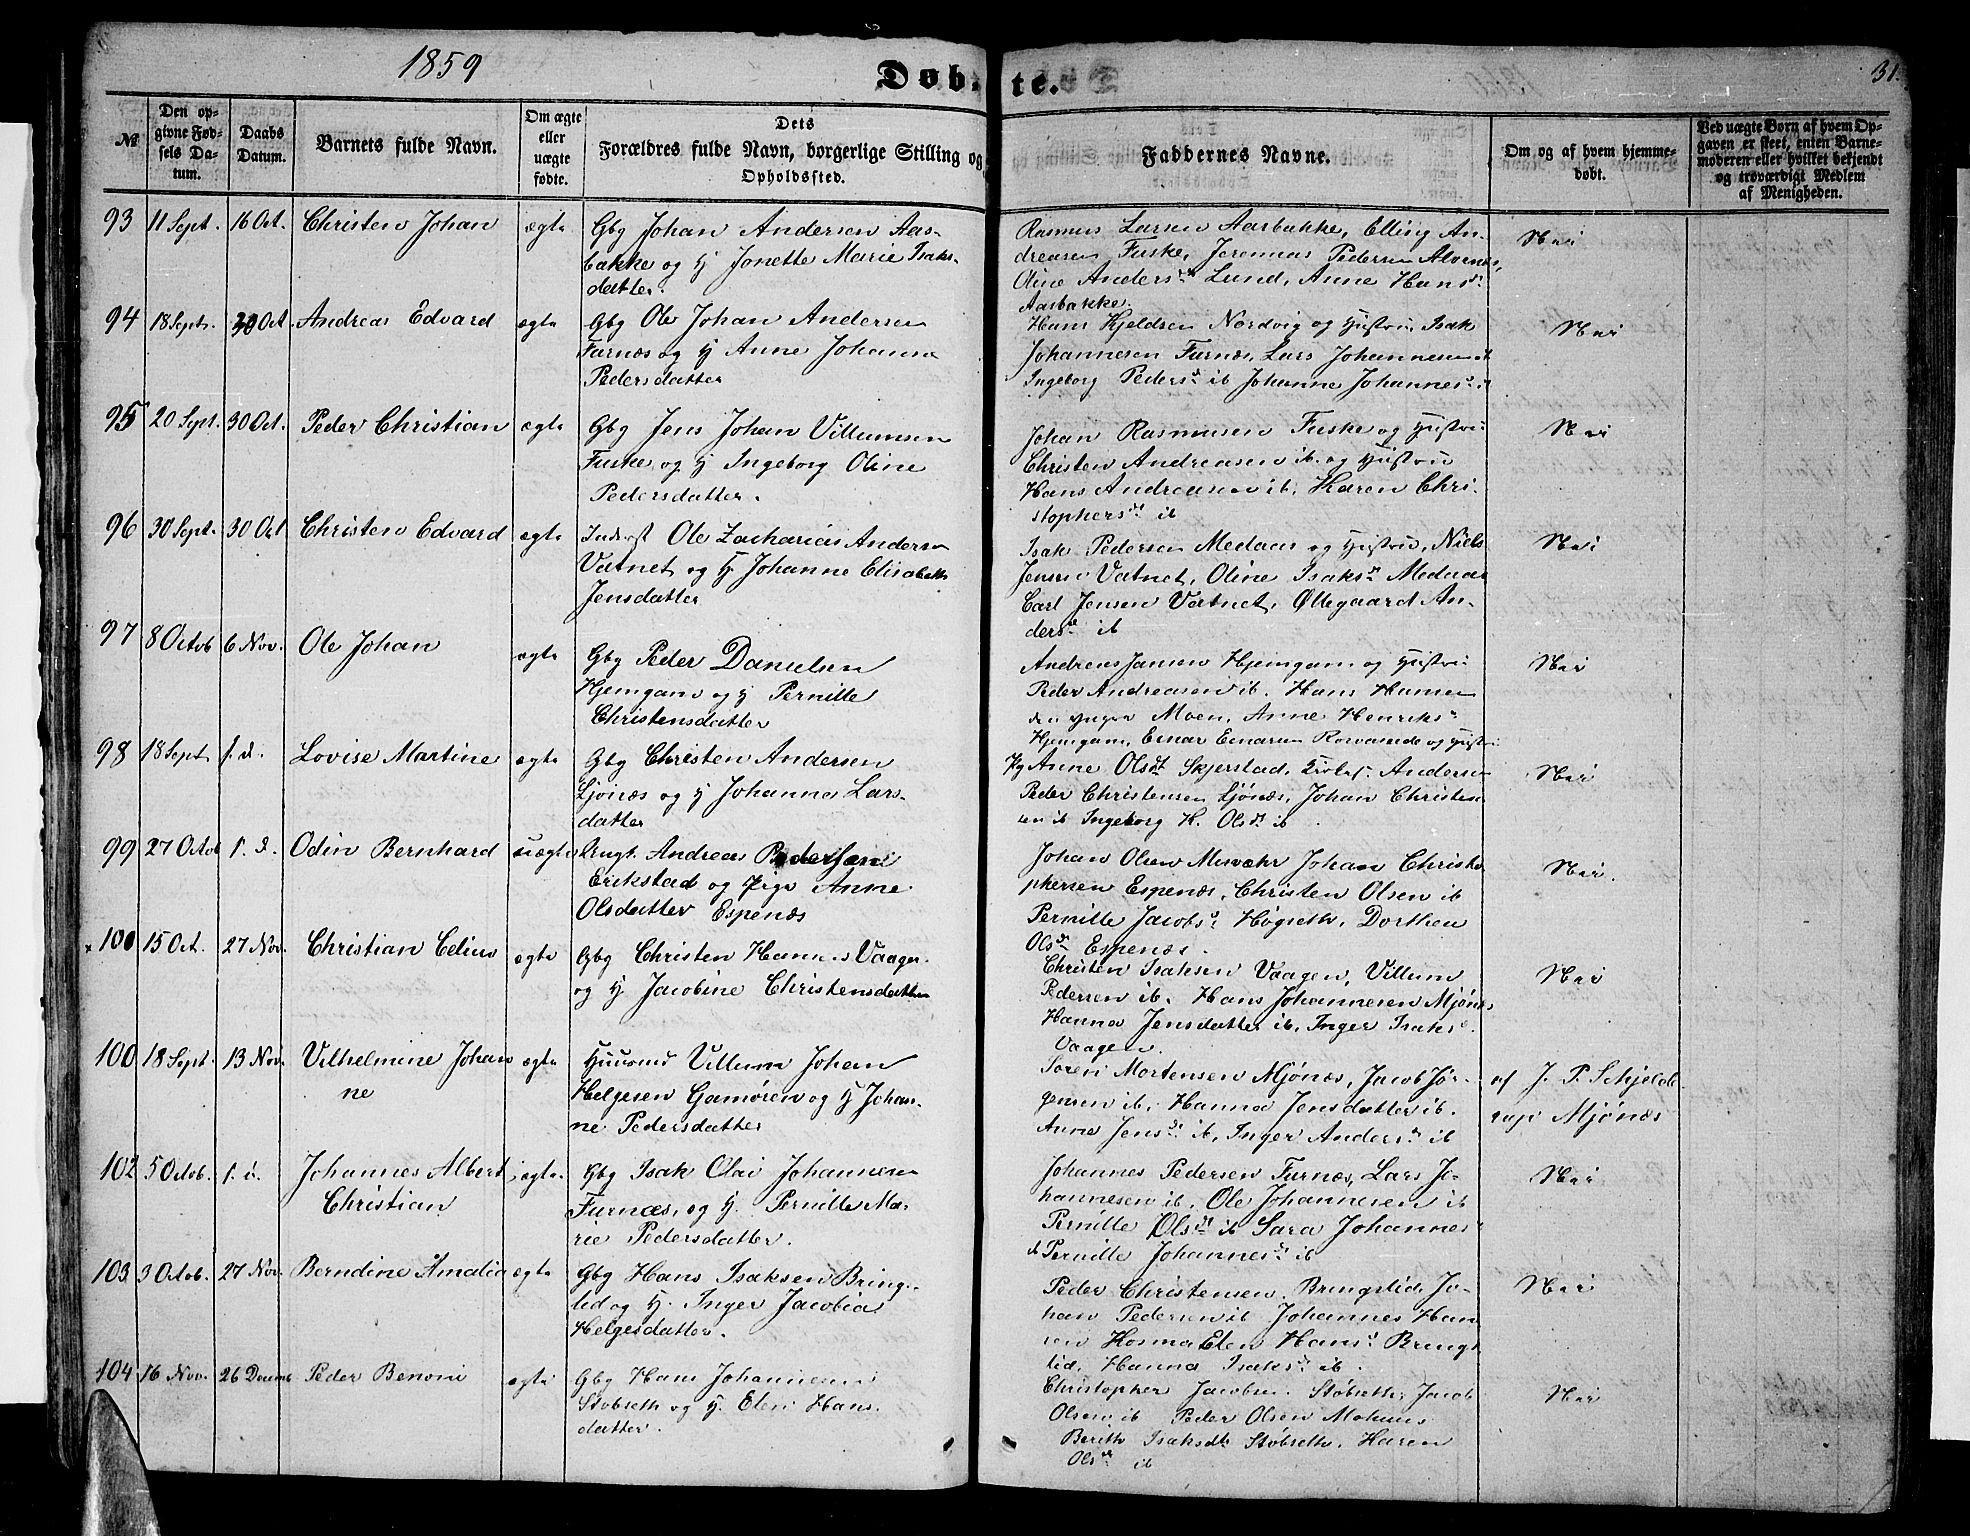 1859
Døbte.
31
№
Den opgivne Fødsels Datum.
Daabs Datum.
Barnets fulde Navn.
Om ægte eller uægte fødte.
Dets Forældres fulde Navn, borgerlige Stilling og Opholdssted.
Faddernes Navne.
Om og af hvem hjemmedøbt.
Ved uægte Børn af hvem Opgaven er skeet, enten Barnemoderen eller hvilket bekjendt og troværdigt Medlem af Menigheden.
93 11 Sept. 16 Oct. Christen Johan ægte
Gbg Johan Andersen Aas-
bakke og H Jonette Marie Isaks-
datter.
Rasmus Larsen Aasbakke, Elling An-
dreasen Fuske, Jeremias Pedersen Alvenes,
Oline Andersd Lund, Anne Hansd
Aasbakke.
Nei
94 18 Sept. 30 Oct. Andreas Edvard ægte
Gbg Ole Johan Andersen
Furnæs og H Anne Johanna
Pedersdatter
Hans Kjeldsen Nordvig og Hustru, Isak
Johannesen Furnæs, Lars Johannesen ib
Ingeborg Pedersd ib Johanne Johannesd
Nei
95 20 Sept. 30 Oct. Peder Christian ægte
Gbg Jens Johan Villumsen
Fuske og H Ingeborg Oline
Pedersdatter.
Johan Rasmusen Fuske og Hustru
Christen Andreasen ib. og Hustru
Hans Andreasen ib, Karen Chri-
stophersd ib
Nei
96 30 Sept. 30 Oct Christen Edvard ægte
Inderst Ole Zacharias Andersen
Vatnet og H Johanne Elisabeth
Jensdatter
Isak Pedersen Medaas og Hustru, Niels
Jensen Vatnet, Oline Isaksd Medaas
Carl Jensen Vatnet, Øllegaard An-
dersd ib
Nei
97 8 Octob 6 Nov. Ole Johan ægte
Gbg Peder Danielsen
Hjemgam og H Pernille
Christensdatter
Andreas Jansen Hjemgam og Hustru
Peder Andreasen ib. Hans Hansen
den yngre Moen, Anne Henriksd
Hjemgam, Einar Einarsen og Hustru
Nei
98 18 Sept. s. d. Lovise Martine ægte
Gbg Christen Andersen
Ljønæs og H Johanna Lars-
datter
Anne Olsdt Skjerstad, Andersen
Peder Christensen Ljønæs, Johan Christen-
sen ib Ingeborg K. Olsdt ib
Nei
99 27 Octob s. d. Odin Bernhard uægte
Ungk. Andreas Pedersen
Erikstad og Pige Anne
Olsdatter Espenæs
Johan Olsen Misvær Johan Christo-
phersen Espenæs, Christen Olsen ib
Pernille Jacobsd Høgseth, Dorthea
Olsd Espenæs.
Nei.
100 15 Oct. 27 Nov. Christian Celius ægte
Gbg Christen Hansen Vaagen
og H Jacobine Christensdatter
Christen Isaksen Vaagen, Villum
Pedersen ib. Hans Johannesen Mjønæs
Hanna Jensdatter ib, Inger Isaksd
Vaagen.
Nei
100 18 Sept. 13 Nov. Vilhelmine Johan
ne ægte
Huusmd Villum Johan
Helgesen Gamøren og H Johan-
ne Pedersdatter
Søren Mortensen Mjønæs, Jacob Jør-
gensen ib, Hanna Jensdatter ib.
Anne Jensd ib, Inger Andersd ib
af J. P. Schjeld-
rup Mjønæs
102 5 Octob. s. d. Johannes Albert
Christian ægte
Gbg Isak Olai Johannesen
Furnæs, og H. Pernille Ma-
rie Pedersdatter.
Johannes Pedersen Furnæs, Lars Jo-
hannesen ib, Ole Johannesen ib
Pernille Olsd ib Sara Johannes-
d Pernille Johannesd ib
Nei
103 3 Octob. 27 Nov. Berndine Amalia ægte
Gbg Hans Isaksen Brings-
lid og H. Inger Jacobia
Helgesdatter.
Peder Christensen Bringslid, Jo-
han Pedersen ib Johannes Han-
sen Kosmo Elen Hansd Brings-
lid, Hanna Isaksd ib.
Nei
104 16 Nov. 26 Decemb Peder Benoni ægte
Gbg Hans Johannesen
Støbseth og H. Elen Hans-
datter.
Christopher Jacobsen Støbseth, Jacob
Olsen ib Peder Olsen
Berith Isaksdt Støbseth, Karen
Olsd ib
Nei